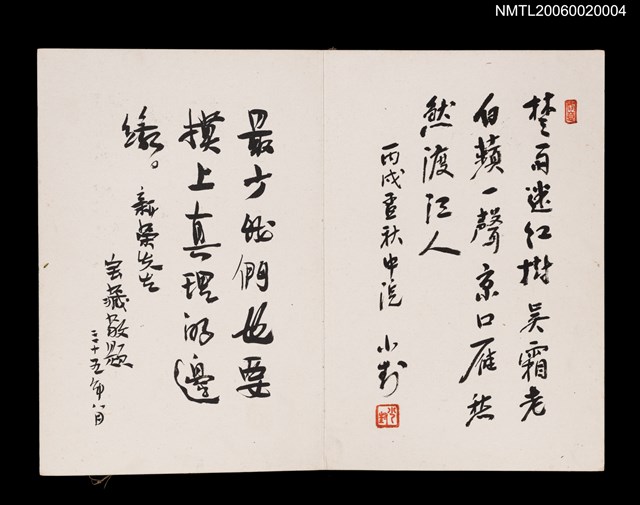 NMTL20060020004
楚雨迷紅樹吳霜老
白蘋一聲京口雁愁
然渡江人
丙戌孟秋中浣 小封
最少我們也要
摸上真理的邊
緣。
新榮先生
寶藏敬題
三十五年八月